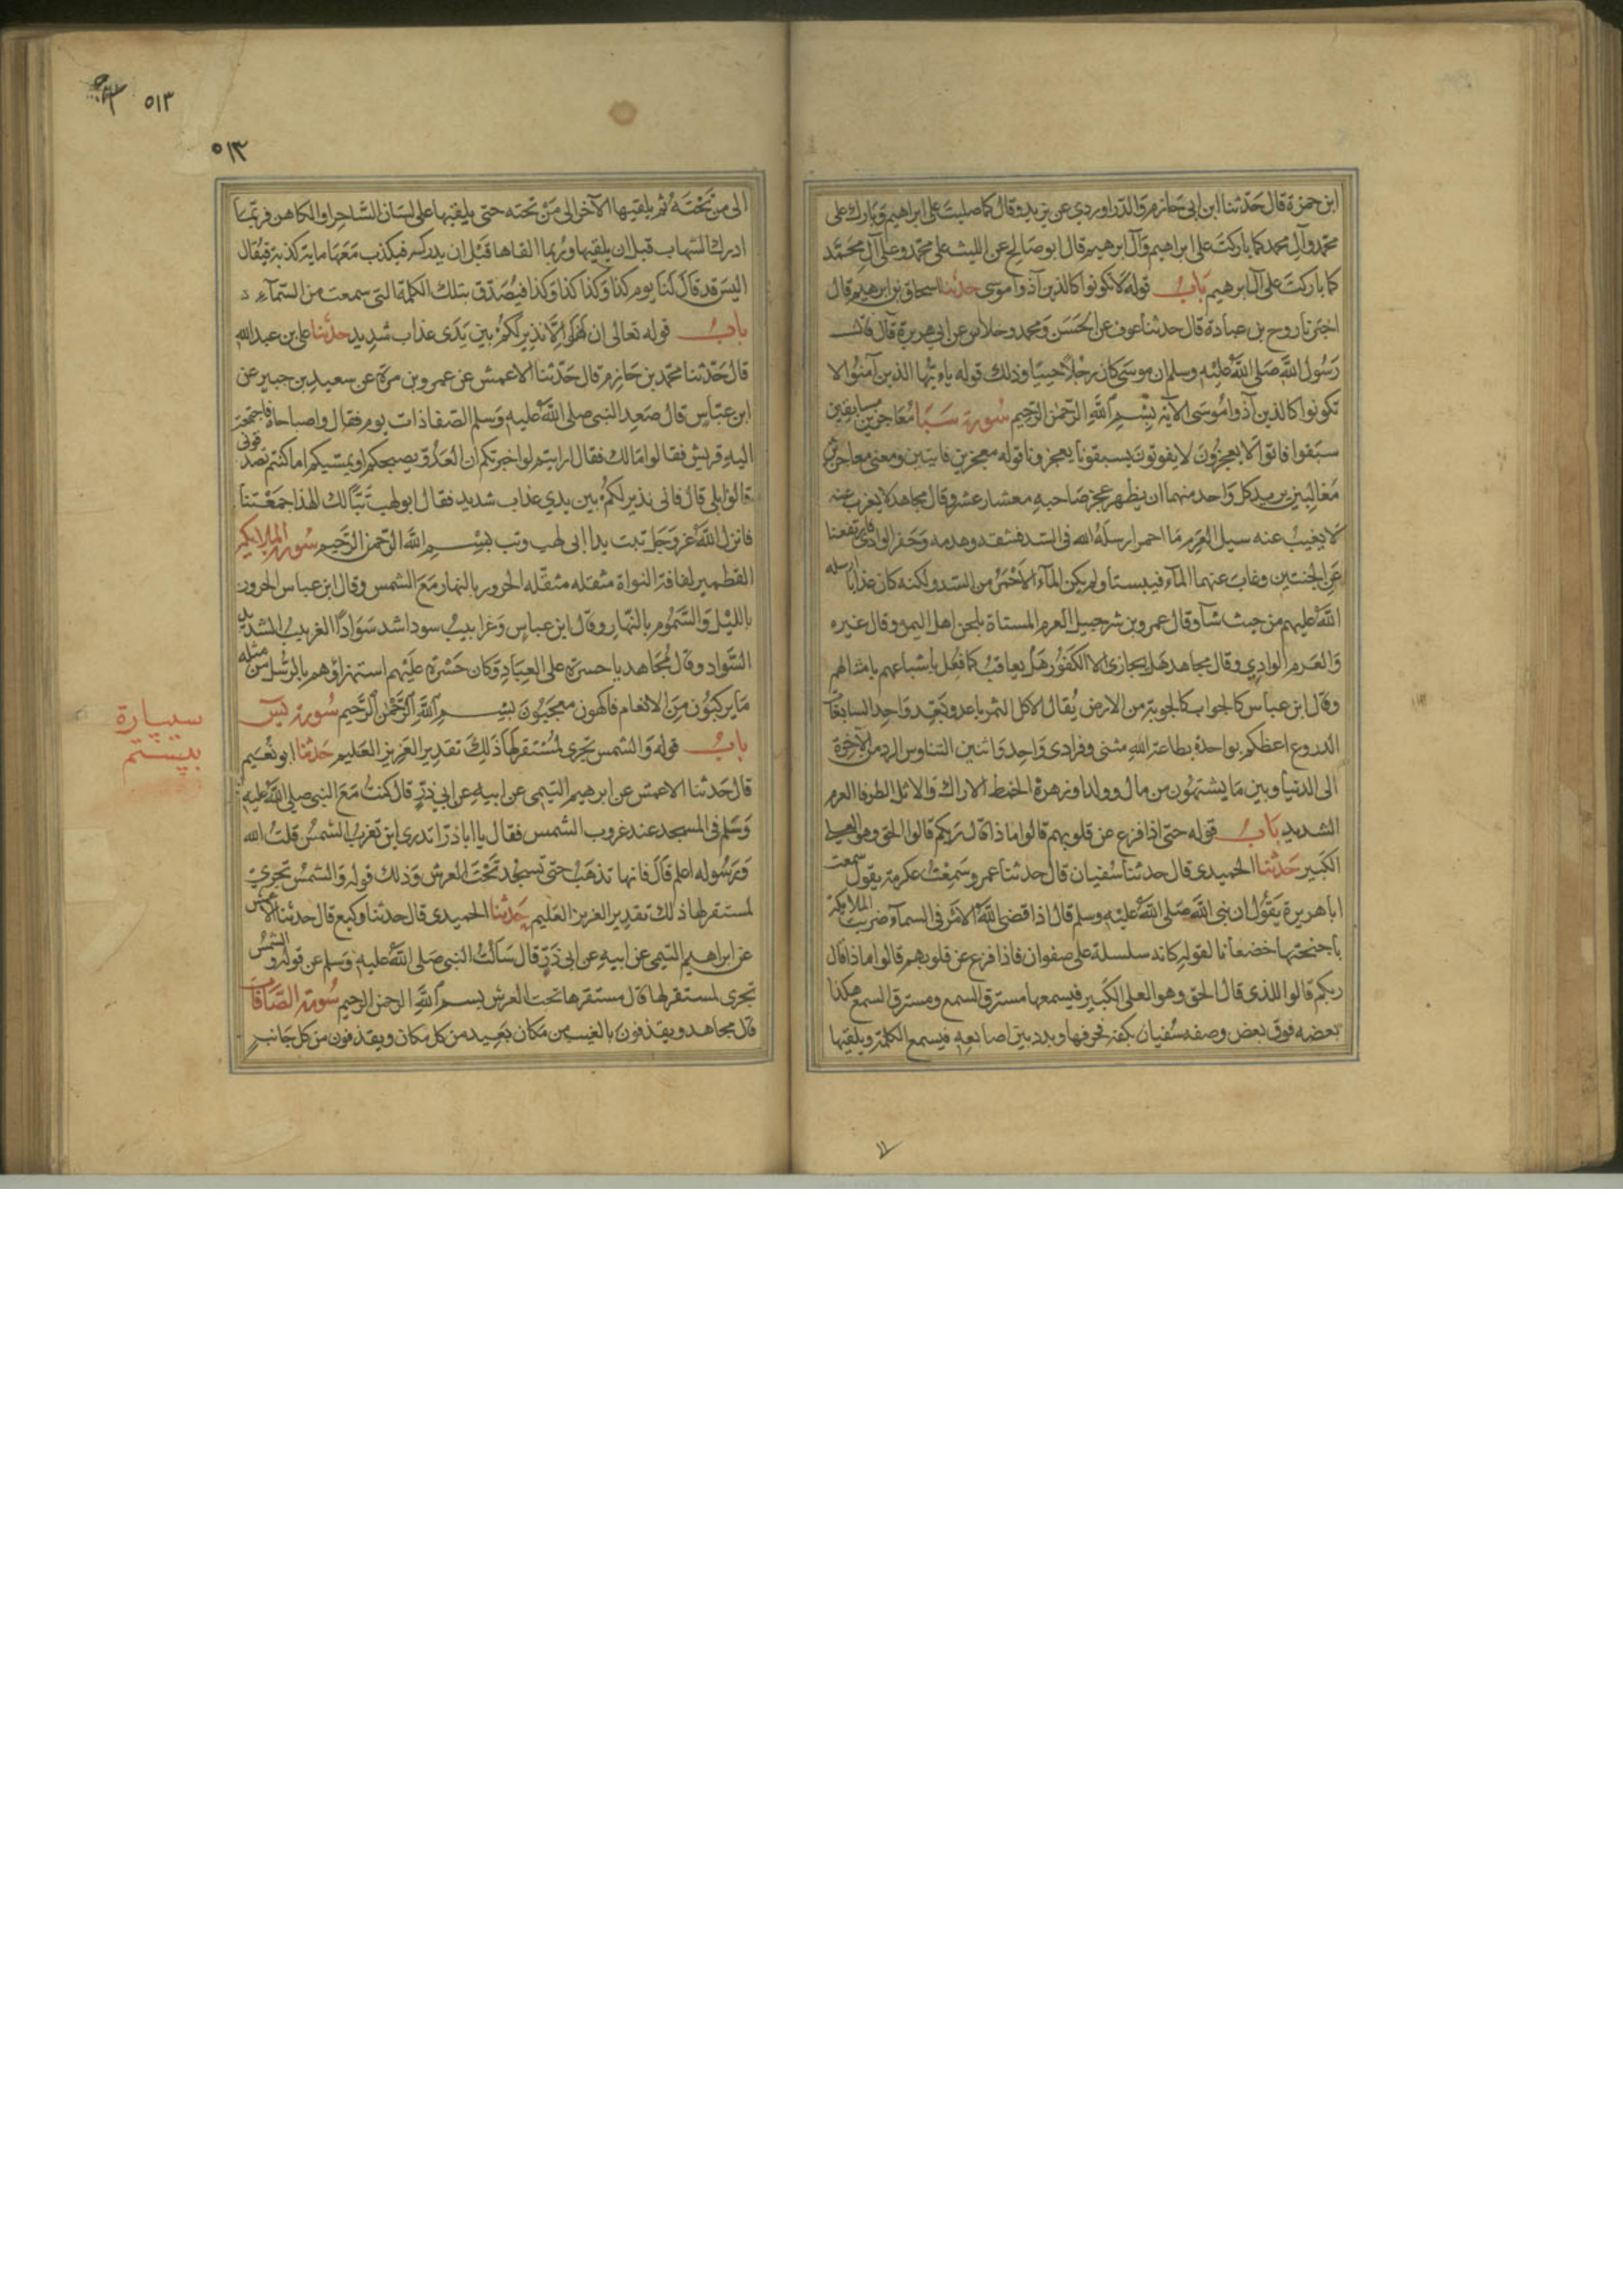 ابن حمزة قال حدثنا ابن ابي حازم والدراوردي عن يزيد وقال كما صليت على ابراهيم وبارك على
محمد وآل محمد كما باركت على ابراهيم وآل ابرهيم قال ابو صالح عن الليث على محمد وعلى آل محمد
كما باركت على آل ابرهيم باب قوله لا تكونوا كالذين آذوا موسى حدثنا اسحاق بن ابرهيم قال
اخبرنا روح بن عبادة قال حدثنا عوف عن الحسن ومحمد وخلاس عن ابي هريرة قال قال
رسول الله صلى الله عليه وسلم ان موسى كان رجلا حييا وذلك قوله ياءيها الذين آمنوا لا
تكونوا كالذين آذوا موسى الآية بسم الله الرحمن الرحيم سورة سبا معاجزين مسابقين
سبقوا فاتوا لا يعجزون لا يفوتون يسبقونا يعجزونا قوله معجزين فايتين ومعنى معاجزين
مغالبين يريد كل واحد منهما ان يظهر عجز صاحبه معشار عشر وقال مجاهد لا يعزب عنه
لا يغيب عنه سيل العرم ماء احمر ارسله الله في السد فشقه وهدمه وحفر الوادي فارتفعنا
عن الجنتين وغاب عنهما الماء فيبستا ولم يكن الماء الاحمر من السد ولكنه كان عذابا ارسله
الله عليهم من حيث شآ وقال عمرو بن شرحبيل العرم المسناة بلحن اهل اليمن وقال غيره
والعرم الوادي وقال مجاهد هل يجازى الا الكفور هل يعاقب كما فعل باشياعهم بامثالهم
وقال ابن عباس كالجواب كالجوبة من الارض يقال الاكل الثمر باعد وبعد واحد السابغات
الدروع اعظكم بواحدة بطاعة الله مثنى وفرادى واحد واثنين التناوش الرد من الآخرة
الى الدنيا وبين ما يشتهون من مال وولد او زهرة الخمط الاراك والاثل الطرفا العرم
الشديد باب قوله حتى اذا فزع عن قلوبهم قالوا ماذا قال ربكم قالوا الحق وهو العلي
الكبير حدثنا الحميدي قال حدثنا سفيان قال حدثنا عمرو سمعت عكرمة يقول سمعت
ابا هريرة يقول ان نبي الله صلى الله عليه وسلم قال اذا قضى الله الامر في السماء ضربت الملائكة
باجنحتها خضعانا لقوله كانه سلسلة على صفوان فاذا فزع عن قلوبهم قالوا ماذا قال
ربكم قالوا للذي قال الحق وهو العلي الكبير فيسمعها مسترق السمع ومسترق السمع هكذا
بعضه فوق بعض وصفه سفيان بكفه فحرفها وبدد بين اصابعه فيسمع الكلمة ويلقيها
٥١٣
٥١٣
الى من تحته ثم يلقيها الآخر الى من تحته حتى يلقيها على لسان الساحر او الكاهن فربما
ادرك الشهاب قبل ان يلقيها وربما القاها قبل ان يدركه فيكذب معها ماية كذبة فيقال
اليس قد قال لنا يوم كذا وكذا كذا وكذا فيصدق بتلك الكلمة التي سمعت من السماء
باب قوله تعالى ان هو الا نذير لكم بين يدي عذاب شديد حدثنا علي بن عبد الله
قال حدثنا محمد بن حازم قال حدثنا الاعمش عن عمرو بن مرة عن سعيد بن جبير عن
ابن عباس قال صعد النبي صلى الله عليه وسلم الصفا ذات يوم فقال واصباحاه فاجتمعت
اليه قريش فقالوا مالك فقال ارايتم لو اخبرتكم ان العدو يصبحكم او يمسيكم اما كنتم تصدقوني
قالوا بلى قال فاني نذير لكم بين يدي عذاب شديد فقال ابو لهب تبا لك الهذا جمعتنا
فانزل الله عز وجل تبت يدا ابي لهب وتب بسم الله الرحمن الرحيم سورة الملايكة
القطمير لفافة النواة مثقله مثقله الحرور بالنهار مع الشمس وقال ابن عباس الحرور
بالليل والسموم بالنهار وقال ابن عباس وغرابيب سود اشد سوادا الغربيب الشديد
السواد وقال مجاهد يا حسرة على العباد وكان حسرة عليهم استهزاؤهم بالرسل من مثله
ما يركبون من الانعام فاكهون معجبون بسم الله الرحمن الرحيم سورة يس
باب قوله والشمس تجري لمستقر لها ذلك تقدير العزيز العليم حدثنا ابو نعيم
قال حدثنا الاعمش عن ابرهيم التيمي عن ابيه عن ابي ذر قال كنت مع النبي صلى الله عليه
وسلم في المسجد عند غروب الشمس فقال يا ابا ذر اتدري اين تغرب الشمس قلت الله
ورسوله اعلم قال فانها تذهب حتى تسجد تحت العرش وذلك قوله والشمس تجري
لمستقر لها ذلك تقدير العزيز العليم حدثنا الحميدي قال حدثنا وكيع قال حدثنا الاعمش
عن ابراهيم التيمي عن ابيه عن ابي ذر قال سالت النبي صلى الله عليه وسلم عن قوله والشمس
تجري لمستقر لها قال مستقرها تحت العرش بسم الله الرحمن الرحيم سورة الصافات
قال مجاهد ويقذفون بالغيب من مكان بعيد من كل مكان ويقذفون من كل جانب
سيپارة
بيستم